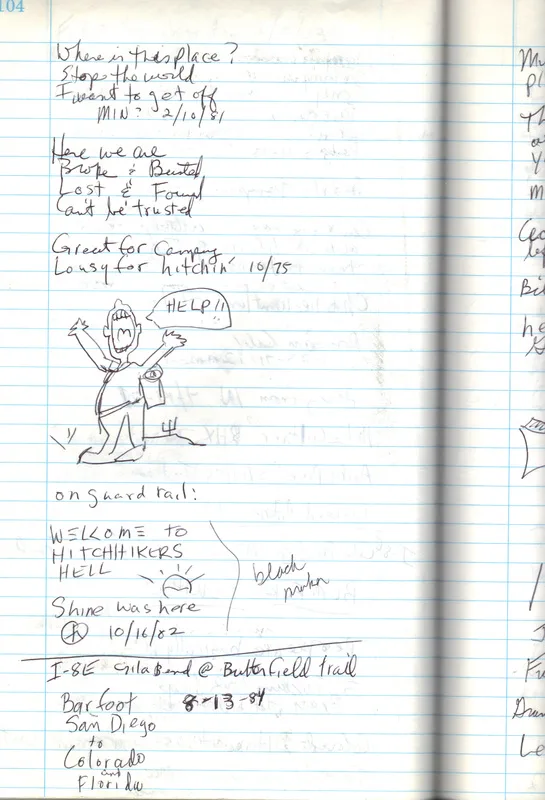 104
Where is this place?
Stop the world
I want to get off
MIN? 2/10/81
Here we are
Broke & Busted
Lost & Found
Can't be trusted
Great for Camping
Lousy for hitchin' 10/75
HELP!!
on guard rail:
WELCOME to
HITCHHIKERS
HELL
Shine was here
10/16/82
black
I-8E Gila Bend @ Butterfield trail
Barfoot 8-13-84
San Diego
to
Colorado
and
Florida